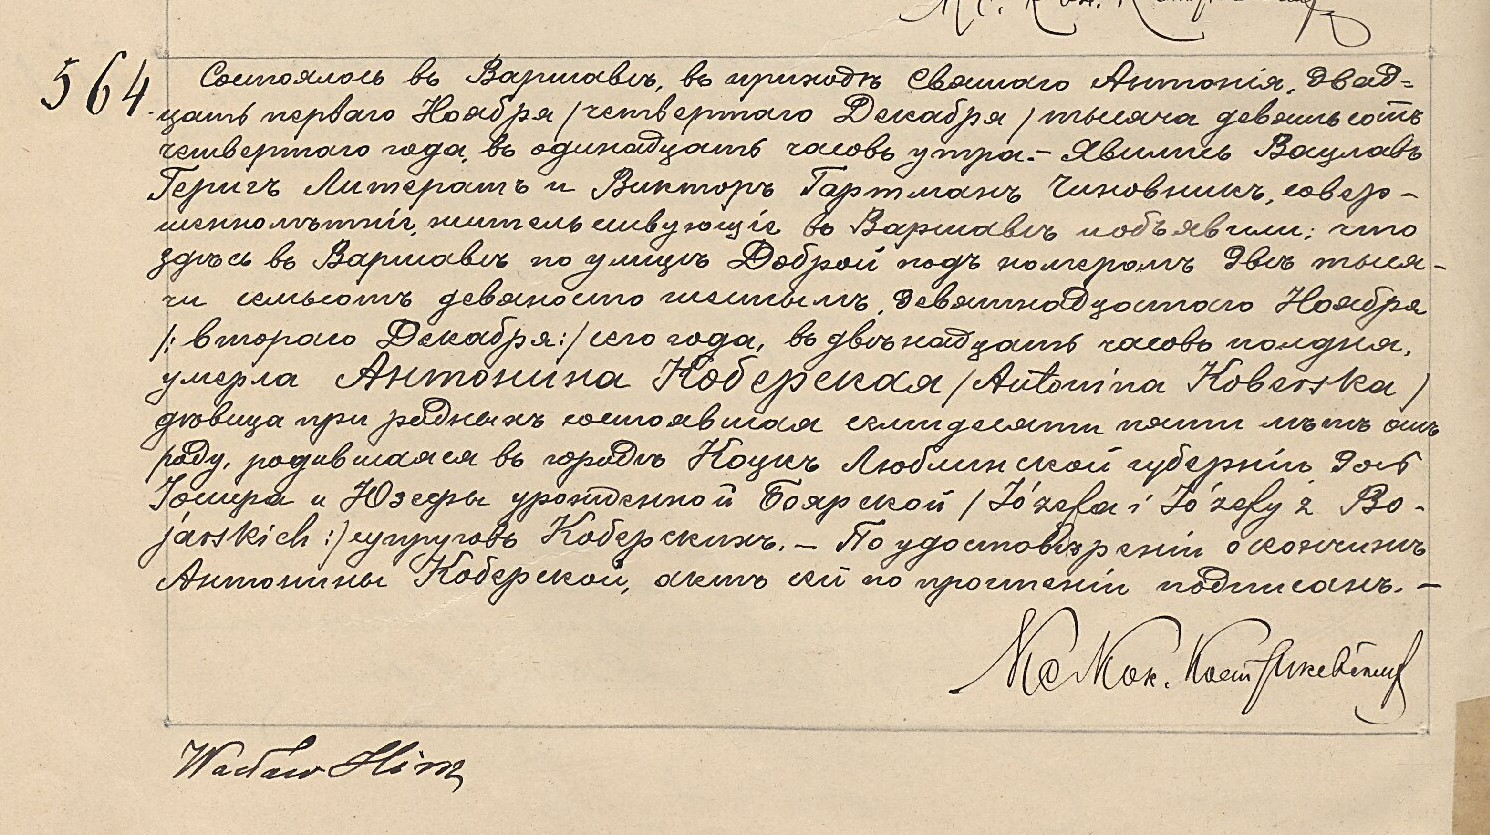 564. Состоялось въ Варшавѣ, въ приходѣ Святаго Антонія, двад-
цать перваго Ноября /четвертаго Декабря/ тысяча девятьсотъ
четвертаго года, въ одинадцать часовъ утра. – Явились Вацлавъ
Геригъ Литератъ и Викторъ Гартманъ Чиновникъ, совер-
шеннолѣтніе, жительствующіе въ Варшавѣ и объявили: что
здѣсь въ Варшавѣ по улицѣ Доброй подъ номеромъ двѣ тыся-
чи семьсотъ девяносто шестымъ, девятнадцатаго Ноября
/: втораго Декабря :/ сего года, въ двѣнадцать часовъ полдня,
умерла Антонина Коберская /Antonina Koberska/
дѣвица при родныхъ состоявшая семидесяти пяти лѣтъ отъ
роду, родившаяся въ городѣ Коцкъ Люблинской губерніи дочь
Іосифа и Юзефы урожденной Боярской /Józefa i Józefy z Bo-
jarskich :/ супруговъ Коберскихъ. – По удостовѣреніи о кончинѣ
Антонины Коберской, актъ сей по прочтеніи подписанъ. –
Wacław